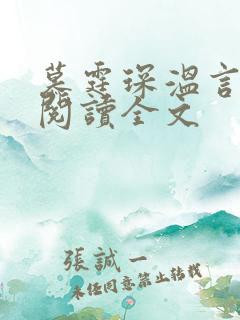 墓霆琛溫言
閱讀全文
張誠一
未经同意禁止转载